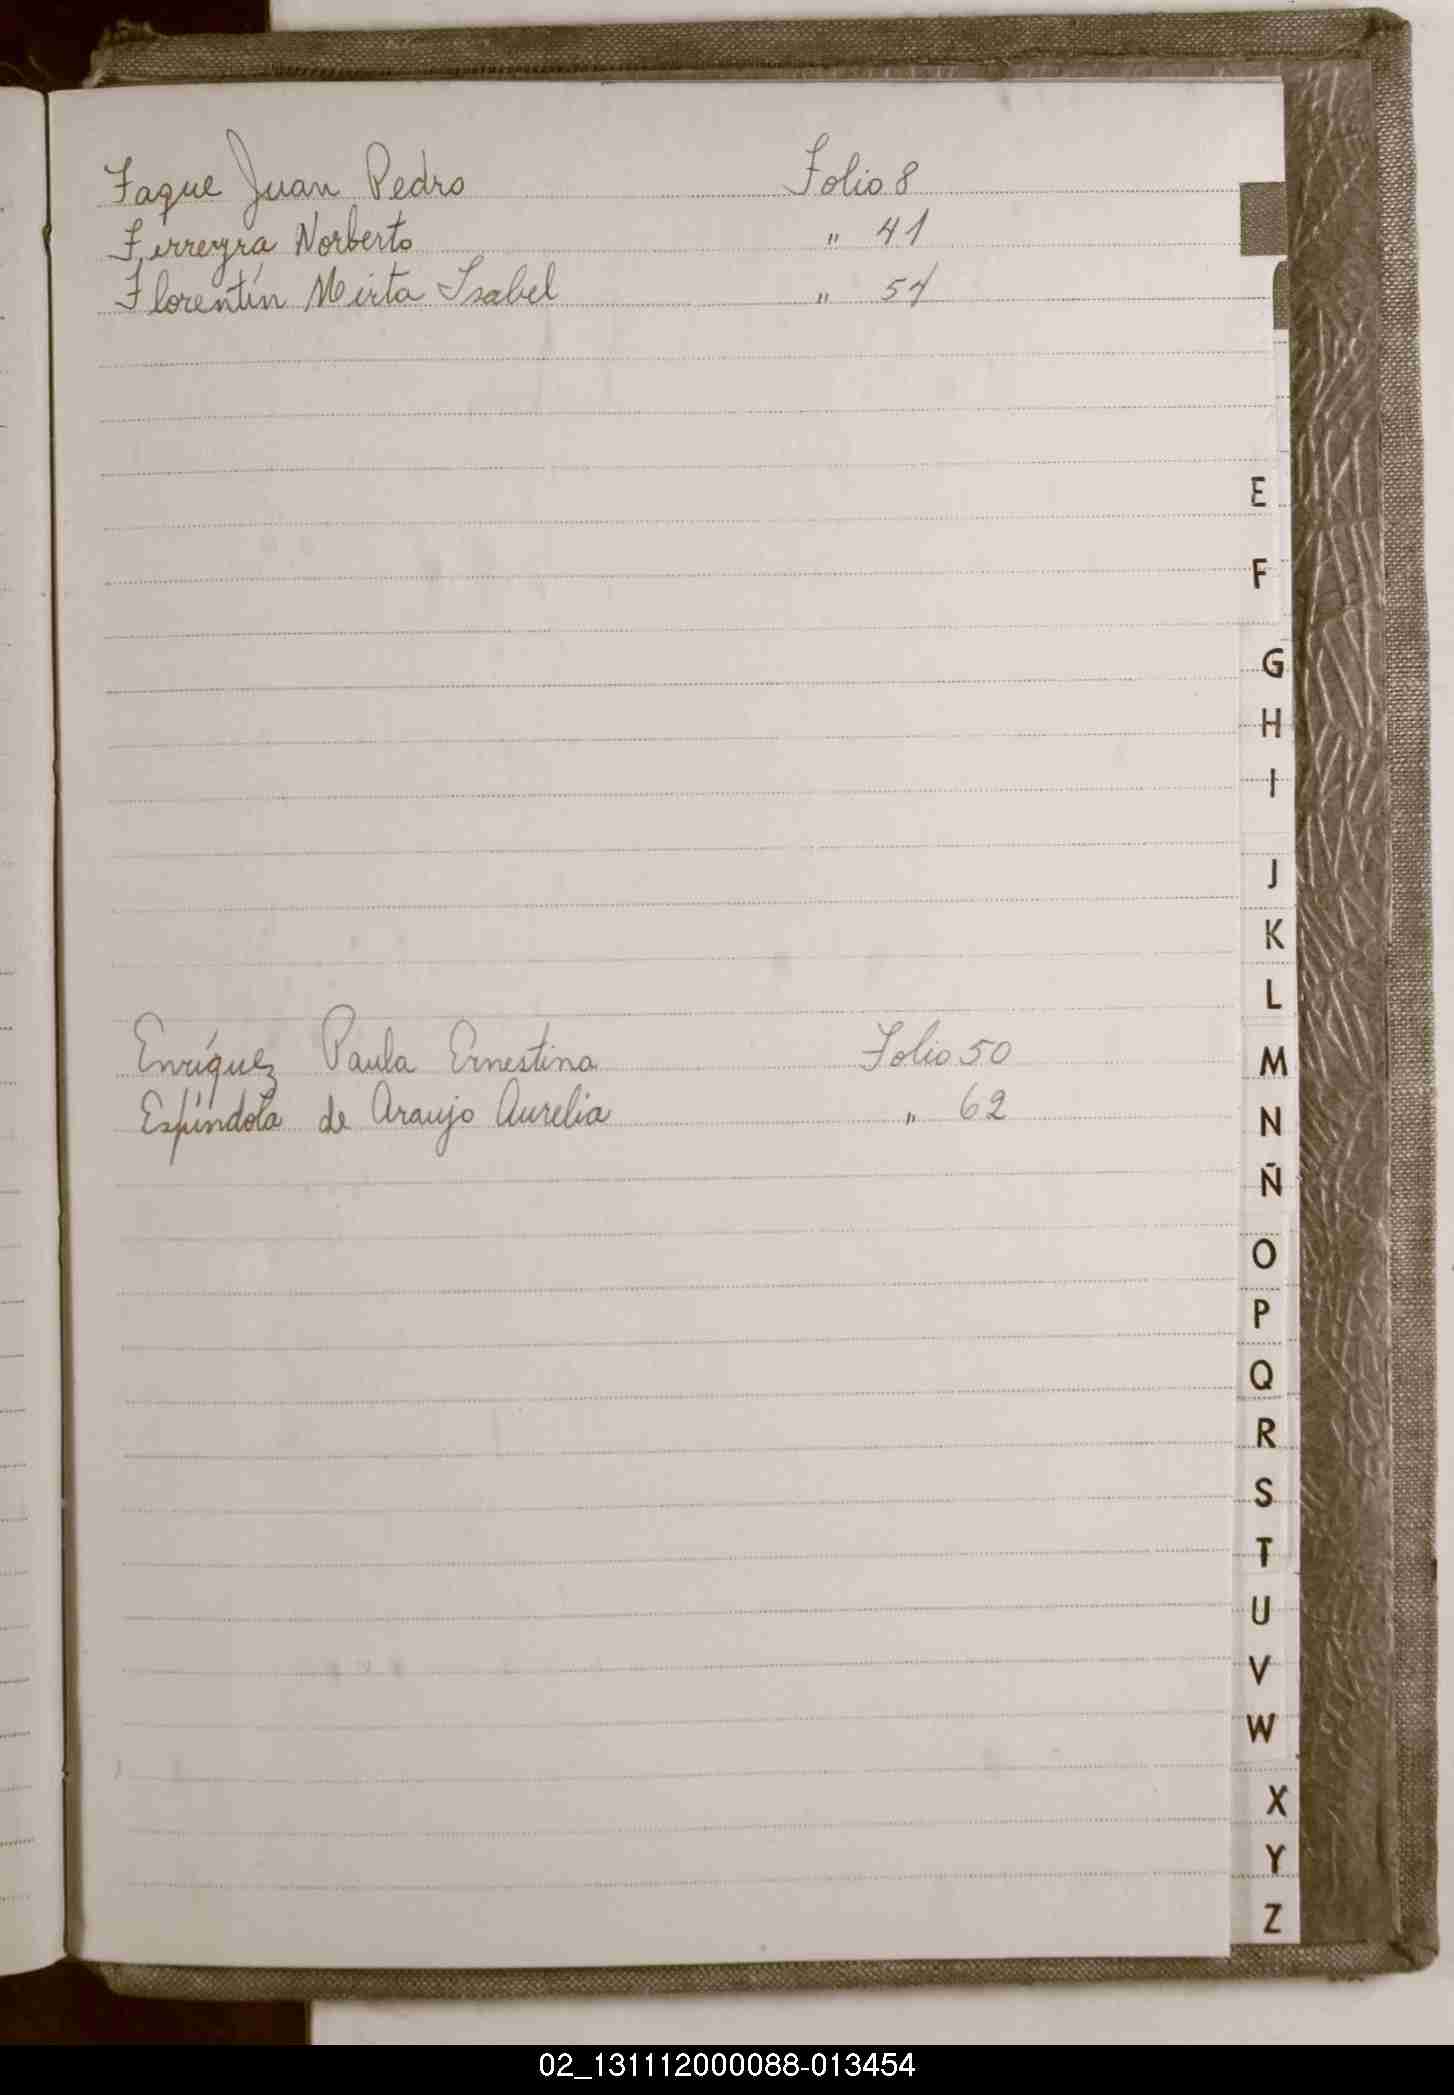 Faque Juan Pedro Folio 8
Ferreyra Norberto " 41
Florentín Mirta Isabel " 54
E
F
G
H
I
J
K
L
Enríquez Paula Ernestina Folio 50
M
Espíndola de Araujo Aurelia " 62
N
Ñ
O
P
Q
R
S
T
U
V
W
X
Y
Z
02_131112000088-013454